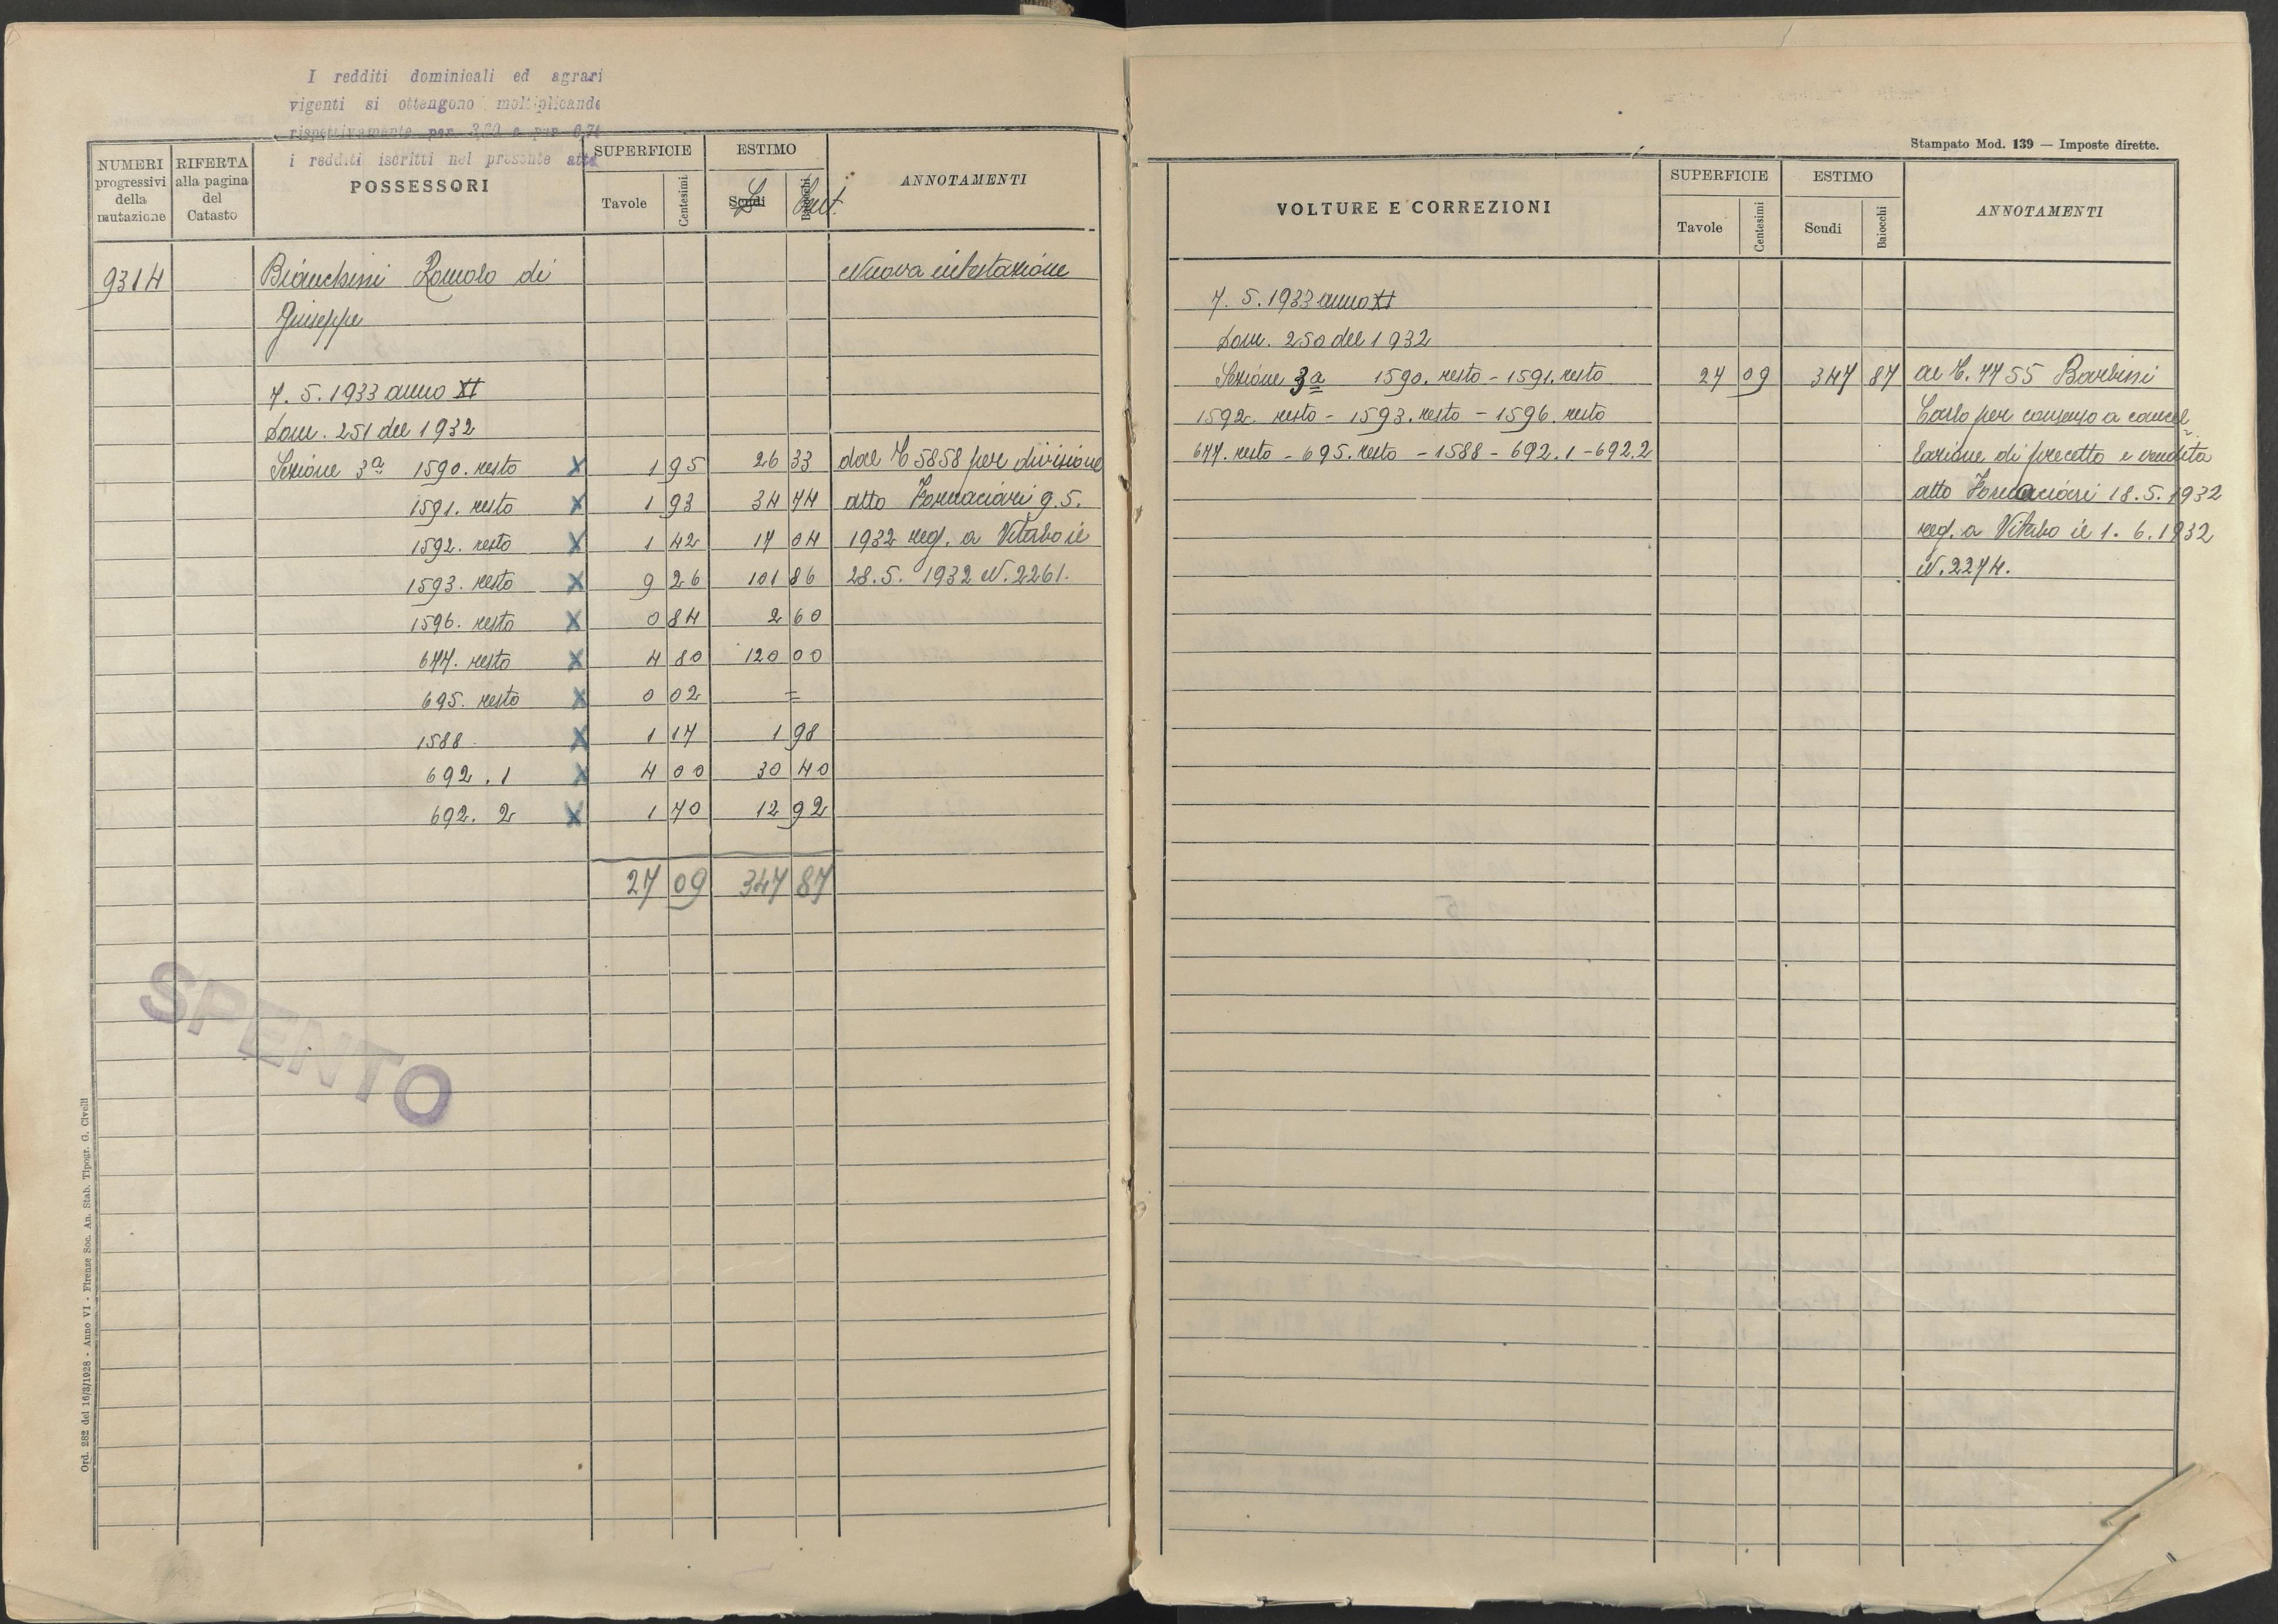 I redditi dominicali ed agrari
vigenti si ottengono moltiplicando
rispettivamente per 3,20 e per
i redditi iscritti nel presente atto
NUMERI progressivi della mutazione
RIFERTA alla pagina del Catasto
POSSESSORI
SUPERFICIE
Tavole Centesimi
ESTIMO
Scudi Baiocchi
L. Cent.
ANNOTAMENTI
9314 Bianchini Romolo di Nuova intestazione
Giuseppe
7. 5. 1933 anno XI
Dom. 251 del 1932
Sezione 3a 1590. resto X 1 95 26 33 dal C 5858 per divisione
1591. resto X 1 93 34 74 atto Fornaciari 9.5.
1592. resto X 1 42 17 04 1932 reg. a Viterbo il
1593. resto X 9 26 101 86 28.5. 1932 N. 2261.
1596. resto X 0 84 2 60
677. resto X 4 80 120 00
695. resto X 0 02 =
1588 X 1 17 1 98
692. 1 X 4 00 30 40
692. 2 X 1 70 12 92
27 09 347 87
SPENTO
Ord. 282 del 16/3/1928 - Anno VI - Firenze Soc. An. Stab. Tipogr. G. Civelli
Stampato Mod. 139 — Imposte dirette.
VOLTURE E CORREZIONI
SUPERFICIE
Tavole Centesimi
ESTIMO
Scudi Baiocchi
ANNOTAMENTI
7. 5. 1933 anno XI
Dom. 250 del 1932
Sezione 3a 1590. resto - 1591. resto 27 09 347 87 al C. 7755 Barbini
1592. resto - 1593. resto - 1596. resto Carlo per consenso a cancel
677. resto - 695. resto - 1588 - 692.1 - 692.2 lazione di precetto e vendita
atto Fornaciari 18.5.1932
reg. a Viterbo il 1. 6. 1932
N. 2274.